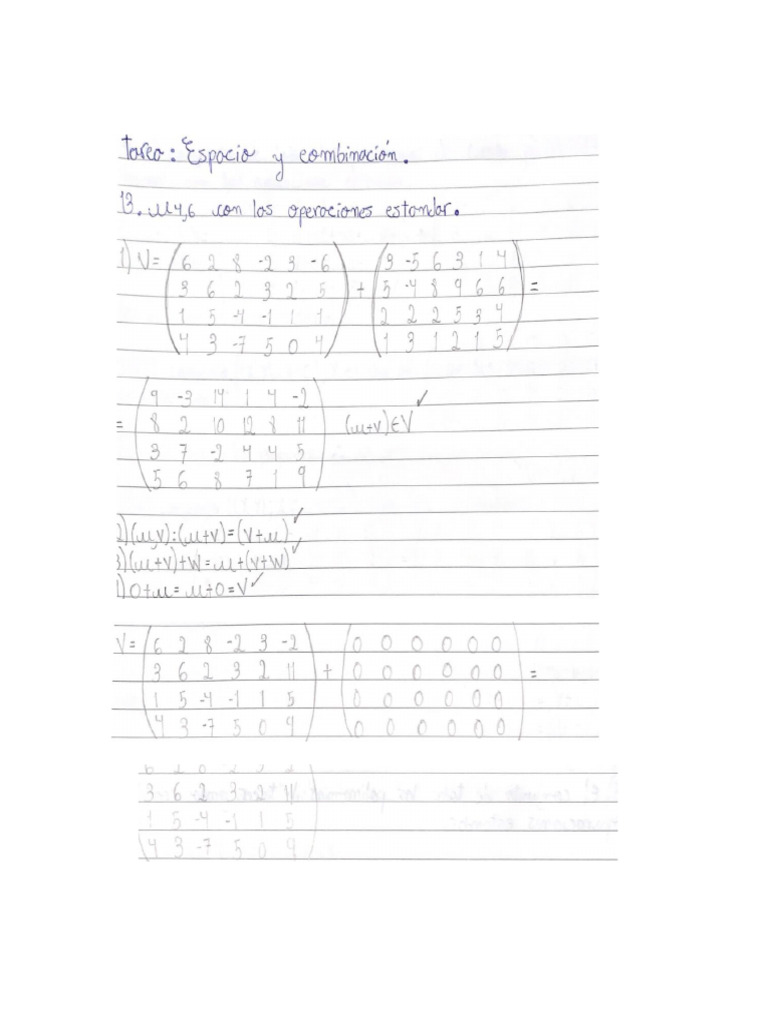 tarea: Espacio y combinación.
13. M4,6 con las operaciones estandar.
1) V= (6 2 8 -2 3 -6) + (3 -5 6 3 1 4) =
3 6 2 3 2 5 5 -4 8 9 6 6
1 5 -4 -1 1 1 2 2 2 5 3 4
4 3 -7 5 0 4 1 3 1 2 1 5
= (9 -3 14 1 4 -2) (u+v)∈V ✓
8 2 10 12 8 11
3 7 -2 4 4 5
5 6 8 7 1 9
2) (u,v):(u+v)=(v+u) ✓
3) (u+v)+W=u+(v+W) ✓
1) 0+u=u+0=V ✓
V= (6 2 8 -2 3 -2) + (0 0 0 0 0 0) =
3 6 2 3 2 11 0 0 0 0 0 0
1 5 -4 -1 1 5 0 0 0 0 0 0
4 3 -7 5 0 9 0 0 0 0 0 0
3 6 2 3 2 11
1 5 -4 -1 1 5
4 3 -7 5 0 9